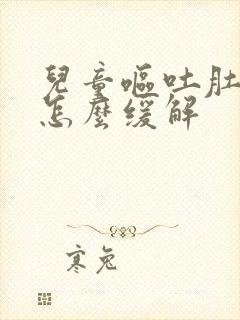 兒童嘔吐肚
怎麼缓解
寒兔